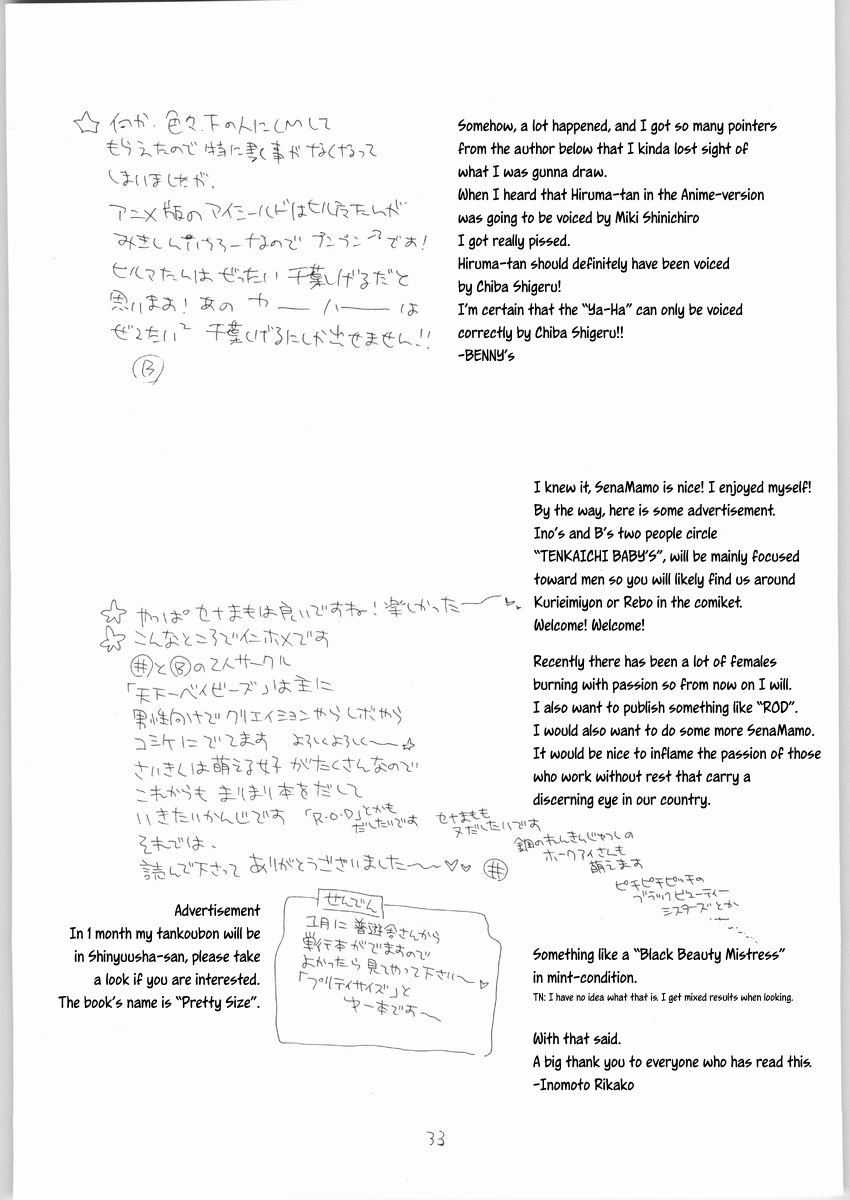 ☆ 何か、色々、下の人にCMして
もらえたので特に書く事がなくなって
しまいましたが、
アニメ版のアイシールドはヒルマたんが
みきしんいちろーなのでプンプンです!
ヒルマたんはぜったい千葉しげるだと
思います!あのヤーーハーーは
ぜったい² 千葉しげるにしか出せません!!
Ⓑ
Somehow, a lot happened, and I got so many pointers
from the author below that I kinda lost sight of
what I was gunna draw.
When I heard that Hiruma-tan in the Anime-version
was going to be voiced by Miki Shinichiro
I got really pissed.
Hiruma-tan should definitely have been voiced
by Chiba Shigeru!
I'm certain that the "Ya-Ha" can only be voiced
correctly by Chiba Shigeru!!
-BENNY's
☆ やっぱセナまもは良いですね!楽しかったー
☆ こんなところで
と Ⓑの2人サークル
「天下一ベイビーズ」は主に
男性向けでクリエイションやらレボやら
コミケにでてます よろしくよろしく〜☆
さいきんは萌える女子がたくさんなので
これからも まりまり本をだして
いきたいかんじです 「R・O・D」とかも
だしたいです
セナまもも
又だしたいです
鋼のれんきんじゅつしの
ホークアイさんも
萌えます
ピチピチピッチの
ブラックビューティー
シスターズとか
それでは、
読んで下さって ありがとうございました〜〜♡♡
I knew it, SenaMamo is nice! I enjoyed myself!
By the way, here is some advertisement.
Ino's and B's two people circle
"TENKAICHI BABY'S", will be mainly focused
toward men so you will likely find us around
Kurieimiyon or Rebo in the comiket.
Welcome! Welcome!
Recently there has been a lot of females
burning with passion so from now on I will.
I also want to publish something like "ROD".
I would also want to do some more SenaMamo.
It would be nice to inflame the passion of those
who work without rest that carry a
discerning eye in our country.
Advertisement
In 1 month my tankoubon will be
in Shinyuusha-san, please take
a look if you are interested.
The book's name is "Pretty Size".
せんでん
1月に 普遊舎さんから
単行本がでますので
よかったら見てやって下さい〜♡
「プリティサイズ」と
ゆー本です〜
Something like a "Black Beauty Mistress"
in mint-condition.
TN: I have no idea what that is. I get mixed results when looking.
With that said.
A big thank you to everyone who has read this.
-Inomoto Rikako
33